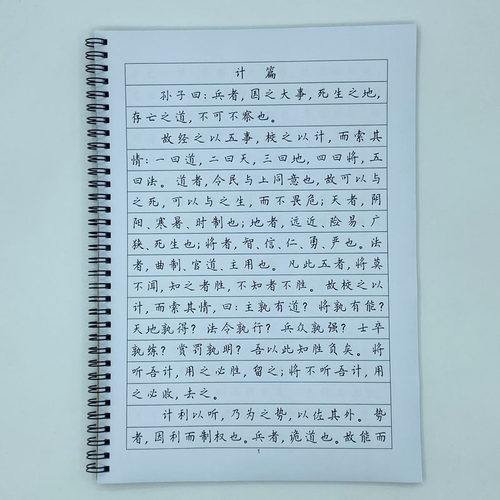 计 篇
孙子曰：兵者，国之大事，死生之地，
存亡之道，不可不察也。
故经之以五事，校之以计，而索其
情：一曰道，二曰天，三曰地，四曰将，五
曰法。道者，令民与上同意也，故可以与
之死，可以与之生，而不畏危；天者，阴
阳、寒暑、时制也；地者，远近、险易、广
狭、死生也；将者，智、信、仁、勇、严也。法
者，曲制、官道、主用也。凡此五者，将莫
不闻，知之者胜，不知者不胜。故校之以
计，而索其情，曰：主孰有道？将孰有能？
天地孰得？法令孰行？兵众孰强？士卒
孰练？赏罚孰明？吾以此知胜负矣。将
听吾计，用之必胜，留之；将不听吾计，用
之必败，去之。
计利以听，乃为之势，以佐其外。势
者，因利而制权也。兵者，诡道也。故能而
1